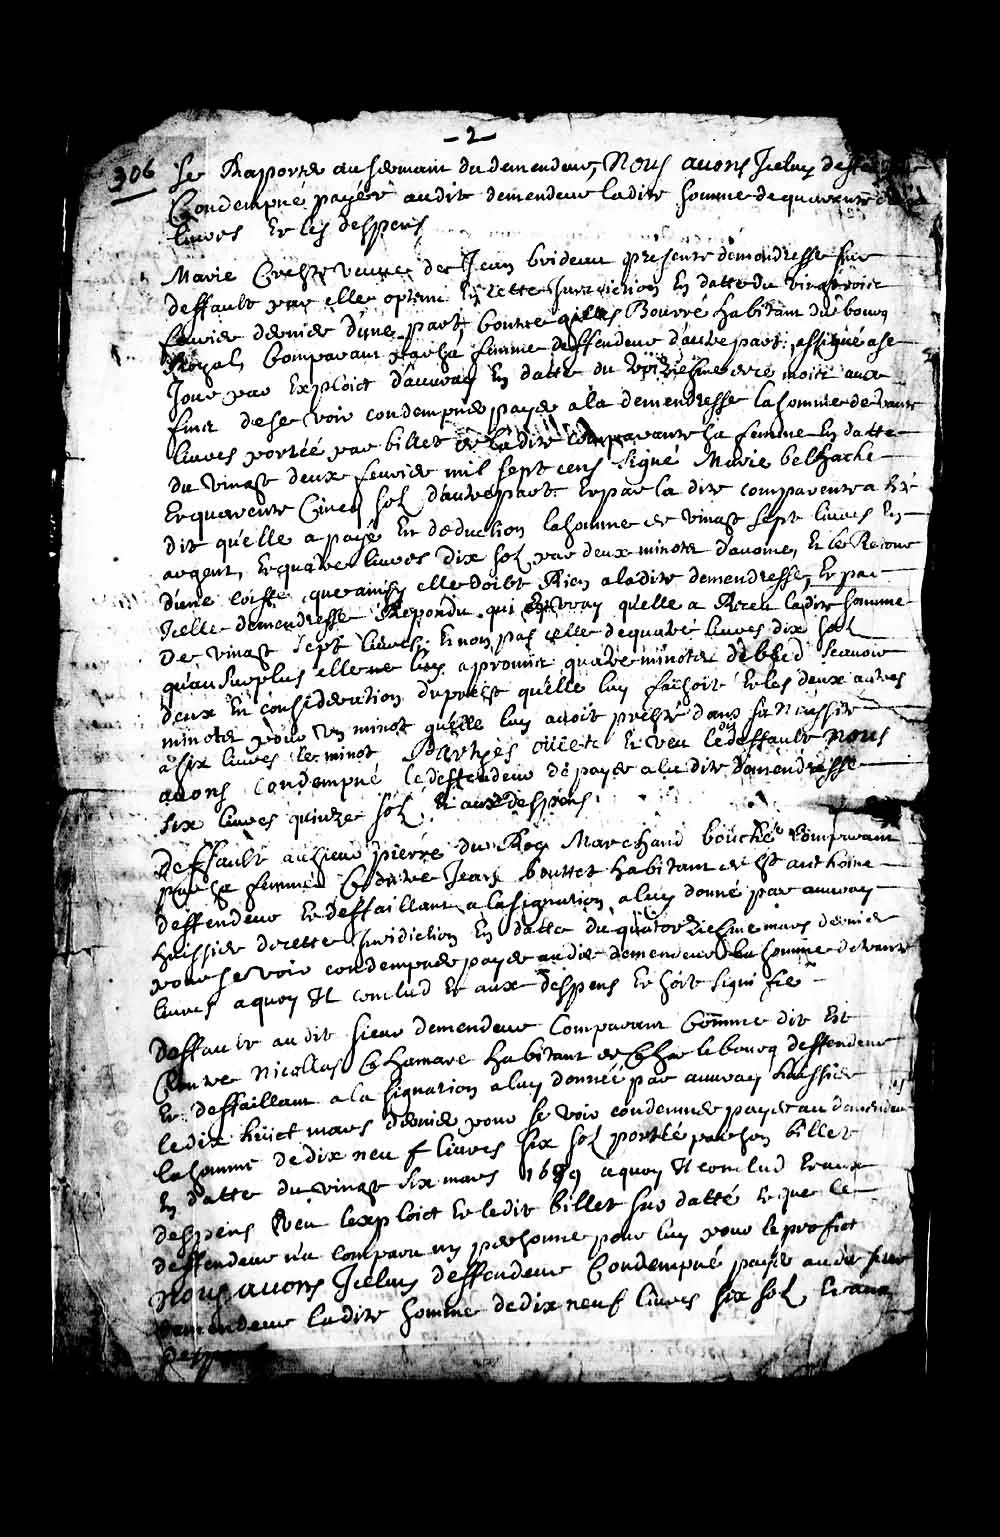 - 2 -
306 se Rapporter au serment du demendeur, Nous avons Jceluy deffendeur
Condempné payér audit demendeur ladite somme de quarante
livres Et les despens
Marie veuve de Jean brideau presente demendresse sur
deffault par elle optenu En cette Jurisdiction En datte du vingt
fevrier dernier d'une part, Contre Bourré habitant du bourg
Royal, Comparant par sa femme deffendeur d'autre part; assigné a ce
Jour par Exploict d'auvray En datte du de ce mois aux
fins de se voir condempner payer a la demendresse la somme de trante
livres portéé par billet de ladite comparante sa femme En datte
du vingt deux fevrier mil sept cens signé Marie belhache
Et quarente Cincq sol d'autre part Et par la dite comparente a été
dit qu'elle a payé En deduction la somme de vingt sept livres En
argent, Et quatre livres dix sol par deux minots d'avoine, Et le Retour
d'une coiffe, que ainsy elle doibt Rien a ladite demendresse, Et par
Jcelle demendresse Repondu qui Est vray qu'elle a Receu ladite somme
De vingt sept livres, Et non pas celle de quatre livres dix sol
qu'au surplus elle ne luy a promict quatre minots de bled scavoir
deux En consideration du prest qu'elle luy faisoit Et les deux autres
minots pour un minot qu'elle luy avoit presté dans sa Necessité
a six livres le minot Partyes ouïes Et veu ledit deffault Nous
avons Condempné le deffendeur de payer a la dite demendresse
six livres quinze sol, Et aux despens.
Deffault au sieur pierre du Roy Marchand bouché comparant
par sa femme Contre Jean bouttet habitant de St anthoine
deffendeur Et deffaillant a lasignation a luy donné par auvray
huissier de cette Jurisdiction En datte du quatorziesme mars dernier
pour se voir condempner payer audit demendeur la somme de trante
livres a quoy Il conclud Et aux despens Et soit signifié
Deffault audit sieur demendeur Comparant Comme dit Est
Contre Nicollas Chamare habitant de Charlebourg deffendeur
Et deffaillant a la signation a luy donnéé par auvray huissier
le dix huict mars dernier pour se voir condemner payer au demendeur
la somme de dix neuf livres six sol portéé par son billet
En datte du vingt six mars 1699 a quoy Il conclud Et aux
despens Veu lexploict Et ledit billet sus datté Et que le
deffendeur n'a comparu ny personne pour luy pour le profict
Nous avons Jceluy deffendeur Condempné payér audit sieur
demendeur ladite somme de dix neuf livres six sol, Et aux
despens